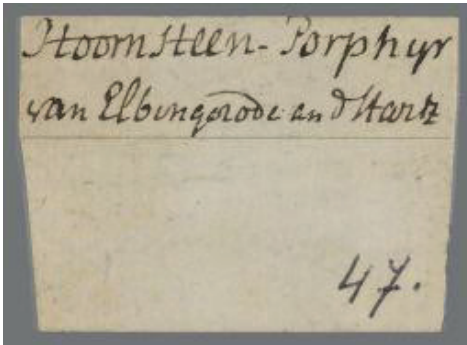 Hoornsteen-Porphyr
van Elbingerode an d Hartz
47.